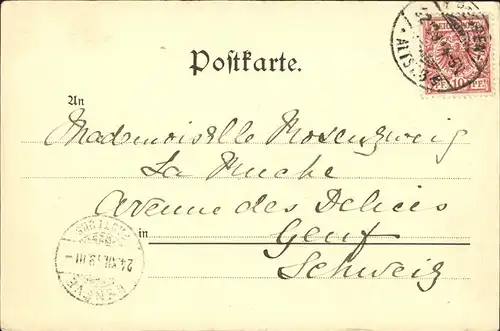 Postkarte.
An
Mademoiselle Rosenzweig
La Ruche
Avenue des Délices
in
Genf
Schweiz
GENÈVE